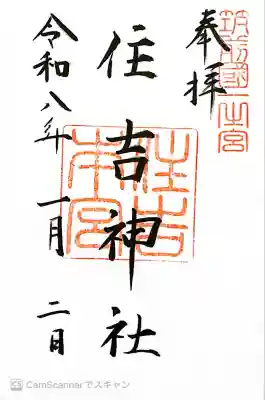 筑前國一之宮
奉拝
住吉神社
住吉
本宮
令和八年 一月 二日
CamScannerでスキャン